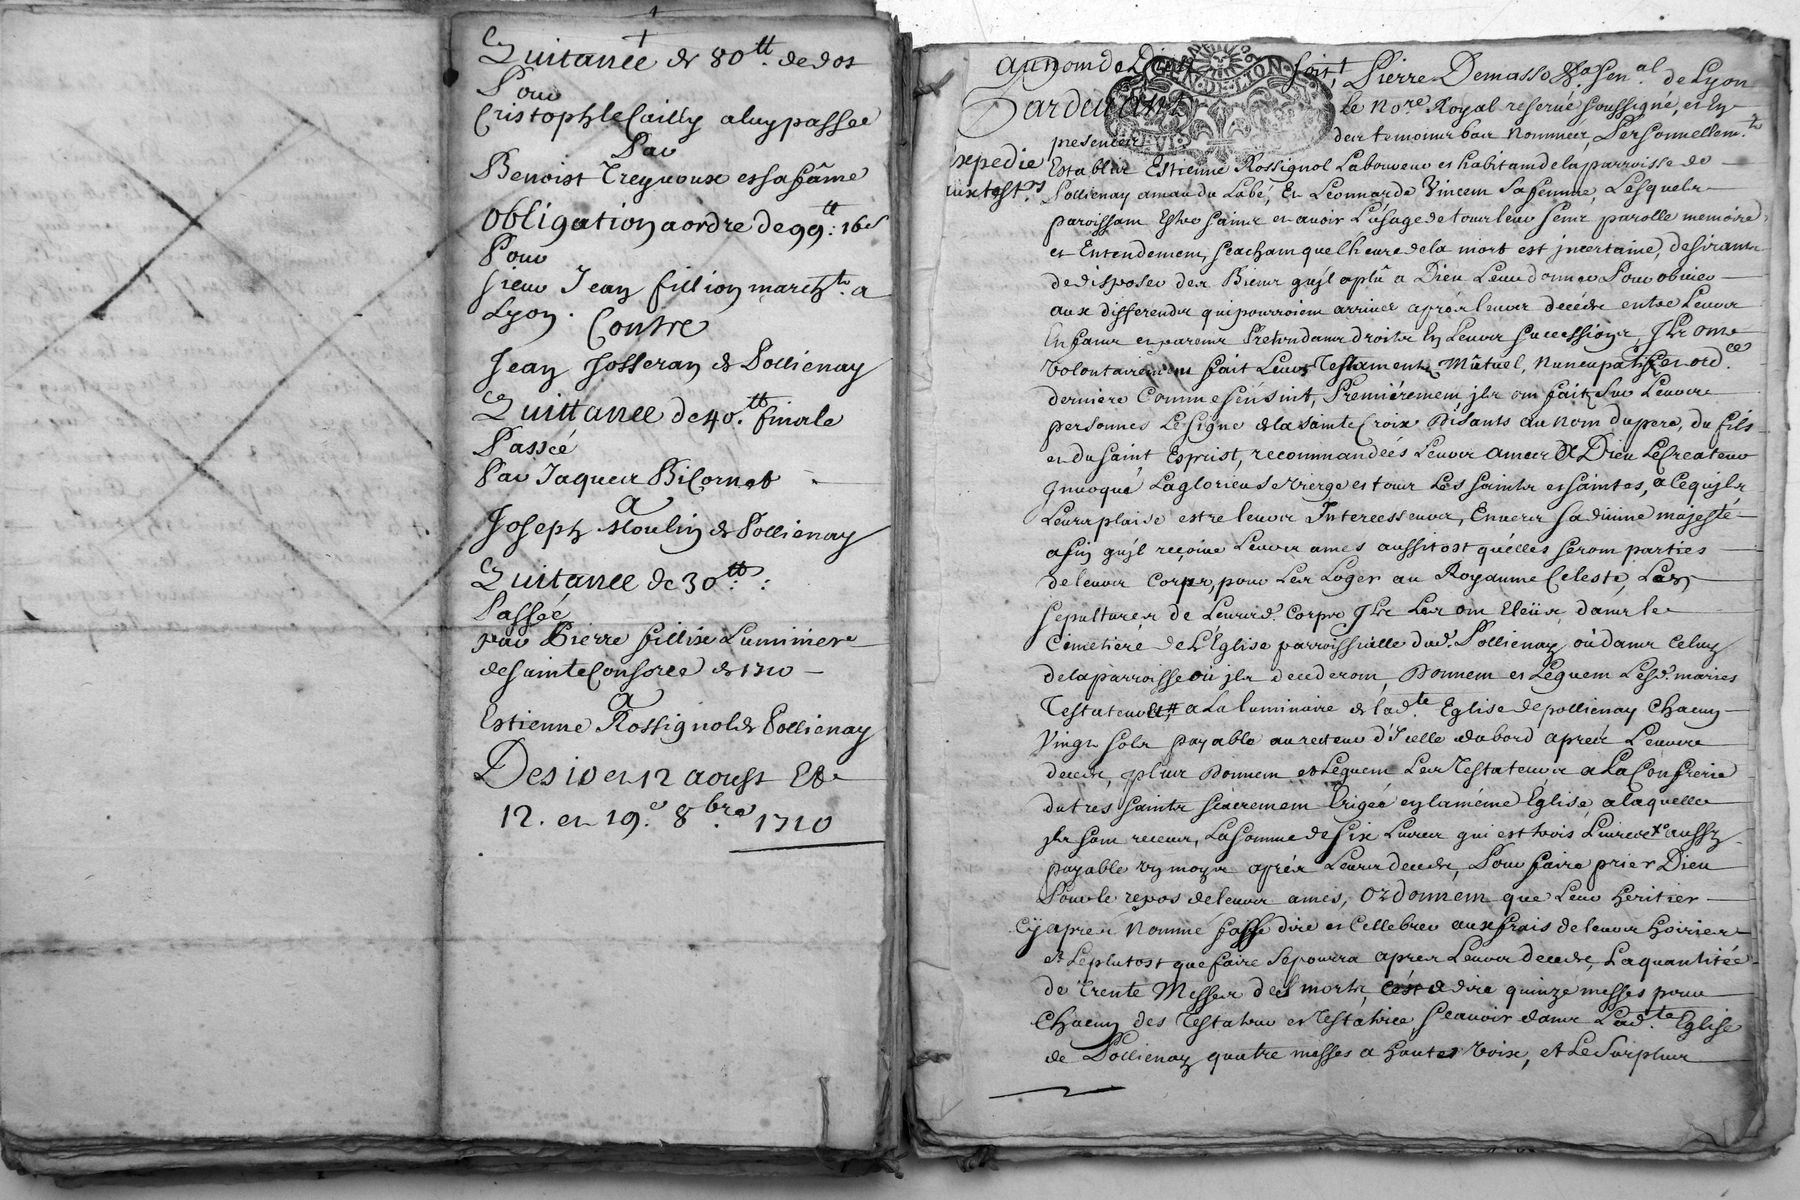 Quitance de 80tt. de dot
Pour
Cristophle Cailly a luy passée
Par
Benoist Treynoux et sa fâme
obligation a ordre de 99tt: 16s
Pour
sieur Jean fillion marcht. a
Lyon.
Contre
Jean Josseran de Pollienay
Quittance de 40.tt finale
Passée
Par Jaques Bicornot
A
Joseph Moulin de Pollienay
Quitance de 30tt:
Passée
par Pierre fillix Luminiere
de sainte Consorce de 1710
A
Estienne Rossignol de Pollienay
Des 10 et 12 aoust Et
12. et 19.e 8.bre 1710
au nom de Dieu soit, Pierre Demasso Sen.al de Lyon
Pardevant le No.re Royal reservé soussigné, et En
presences des temoins bas Nommés, Personnellem.t
Expedié
aux test.rs
Establis Estienne Rossignol Laboureur et habitant de la parroisse de
Pollienay amandu Labé, Et Leonnarde Vincent sa femme, Lesquels
paroissant Estre sains et avoir L'usage de tous leur sens parolle memoire
et Entendement, scachant que l'heure de la mort est incertaine, desirants
de disposer des Biens qu'jl a plû a Dieu Leur donner Pour obvier
aux differends qui pourroient arriver aprés leurs decéds entre Leurs
Enfans et parens Pretendans droits En Leurs successions, Jls ont
volontairement fait Leurs Testaments Mûtuel, Nuncupatif et ord.ce
derniere Comme sénsuit, Premiérement jls ont fait sur Leurs
personnes Le signe de la sainte Croix Disants au nom du pere, du fils
et du saint Esprist, recommandéés Leurs ames A Dieu Le Createur
Jnvoqué La glorieuse vierge et tous Les saints et saintes, a ce qu'jls
Leurs plaise estre leurs Intercesseurs, Envers sa divine majesté
afin qu'jl reçoive Leurs ames aussitost qu'elles seront parties
de leurs corps, pour Les Loger au Royaume Celeste, Les
sepultures de Leursd. corps Jls Les ont Eleües dans le
Cimetiére de L'Eglise parroissialle dud. Pollienay ou dans Celuy
de la parroisse ou jls decederont, Donnent et Leguent Lesd. mariés
Testateurs, a La luminaire de lad.te Eglise de pollienay Chacun
Vingt sols payable au recteur d'Jcelle dabord aprés Leurs
decéds, plus Donnent et Leguent Les Testateurs a La Confrerie
du tres saint sacrement Erigée en la méme Eglise, a laquelle
jls sont receus, La somme de six Livres qui est trois Livres aussy
payable un mois aprés Leurs decéds, Pour faire prier Dieu
Pour le repos de leurs ames, ordonnent que Leur heritier
Cy aprés Nommé fasse dire et Cellebrer aux frais de leurs hoiries
et Le plutost que faire Se pourra aprés Leurs decéds, La quantitéé
de Trente Messes des morts, c'est a dire quinze messes pour
Chacun des Testateur et Testatrice, scavoir dans Lad.te Eglise
de Pollienay quatre messes a hautes voix, et Le surplus